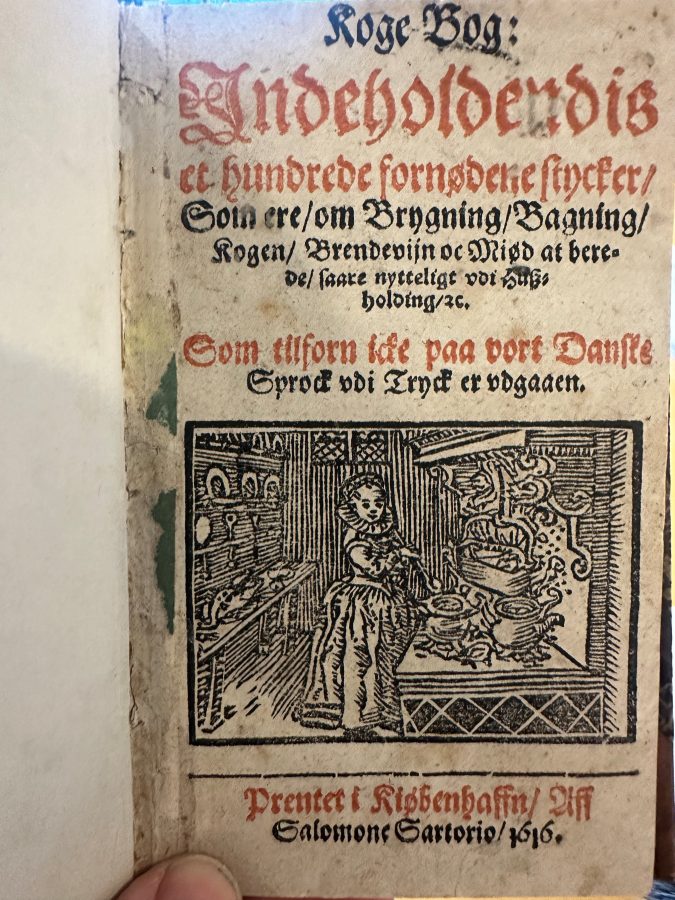 Koge Bog:
Indeholdendis
et hundrede fornødene stycker/
Som ere/om Brygning/Bagning/
Kogen/ Brendevijn oc Miød at bere-
de/ saare nytteligt vdi Huß-
holding/ꝛc.
Som tilforn icke paa vort Danske
Sprock vdi Tryck er vdgaaen.
Prentet i Kiøbenhaffn/ Aff
Salomone Sartorio/ 1616.